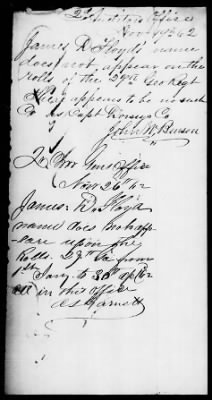 2d Auditors Office
Nov 19th 62
James D. Floyds' name
does not appear on the
rolls of the 29th Geo Regt
There appears to be no such
Co as Capt
John W.
Qr Mr Genl Office
Nov 26th 62
James D. Floyd
name does not app-
ear upon the
Rolls. 29th Ga from
1st Jany to 30th
in this office